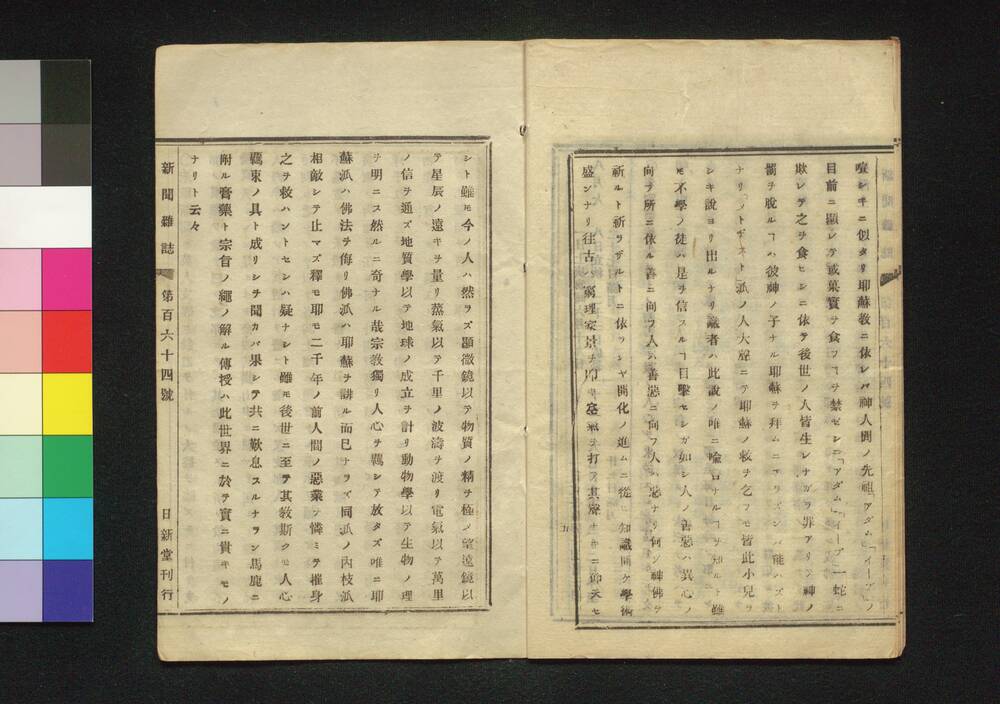 喧シキニ似タリ耶蘇教ニ依レバ神人間ノ先祖「アダム」「イーブ」ノ
目前ニ顯レテ或菓實ヲ食フヿヲ禁ゼシニ「アダム」「イーブ」一蛇ニ
欺レテ之ヲ食セシニ依テ後世ノ人皆生レナガラ罪アリテ神ノ
罰ヲ脱ルヿハ彼神ノ子ナル耶蘇ヲ拜ムニアラズンバ能ハズト
ナリ「ノトヂネト派ノ人大聲ニテ耶蘇ノ救ヲ乞フモ皆此小兒ラ
シキ説ヨリ出ルナリ識者ハ此説ノ唯ニ喩言ナルヿヲ知ルト雖
モ不學ノ徒ハ是ヲ信スルヿ目撃セシガ如シ人ノ善惡ハ其心ノ
向フ所ニ依ル善ニ向フ人ハ善惡ニ向フ人ハ惡ナリ何ゾ神佛ヲ
祈ルト祈ラザルトニ依ランヤ開化ノ進ムニ從ヒ知識開ケ學術
盛ンナリ往古ハ窮理家景チ仰ギ空氣ヲ打ツ其聲ヲ
シト雖モ今ノ人ハ然ラズ顯微鏡以テ物質ノ精ヲ極メ望遠鏡以
テ星辰ノ遠キヲ量リ蒸氣以テ千里ノ波濤ヲ渡リ電氣以テ萬里
ノ信ヲ通ズ地質學以テ地球ノ成立ヲ計リ動物學以テ生物ノ理
ヲ明ニス然ルニ奇ナル哉宗教獨リ人心ヲ羈シテ放タズ唯ニ耶
蘇派ハ佛法ヲ侮リ佛派ハ耶蘇ヲ誹ル而已ナラズ同派ノ内枝派
相敵シテ止マズ釋モ耶モ二千年ノ前人間ノ惡業ヲ憐ミテ摧身
之ヲ救ハントセシハ疑ナシト雖モ後世ニ至テ其教斯クモ人心
羈束ノ具ト成リシヲ聞カバ果シテ共ニ歎息スルナラン馬鹿ニ
附ル膏藥ト宗旨ノ繩ノ解ル傳授ハ此世界ニ於テ實ニ貴キモノ
ナリト云々
新聞雜誌 第百六十四號 日新堂刊行